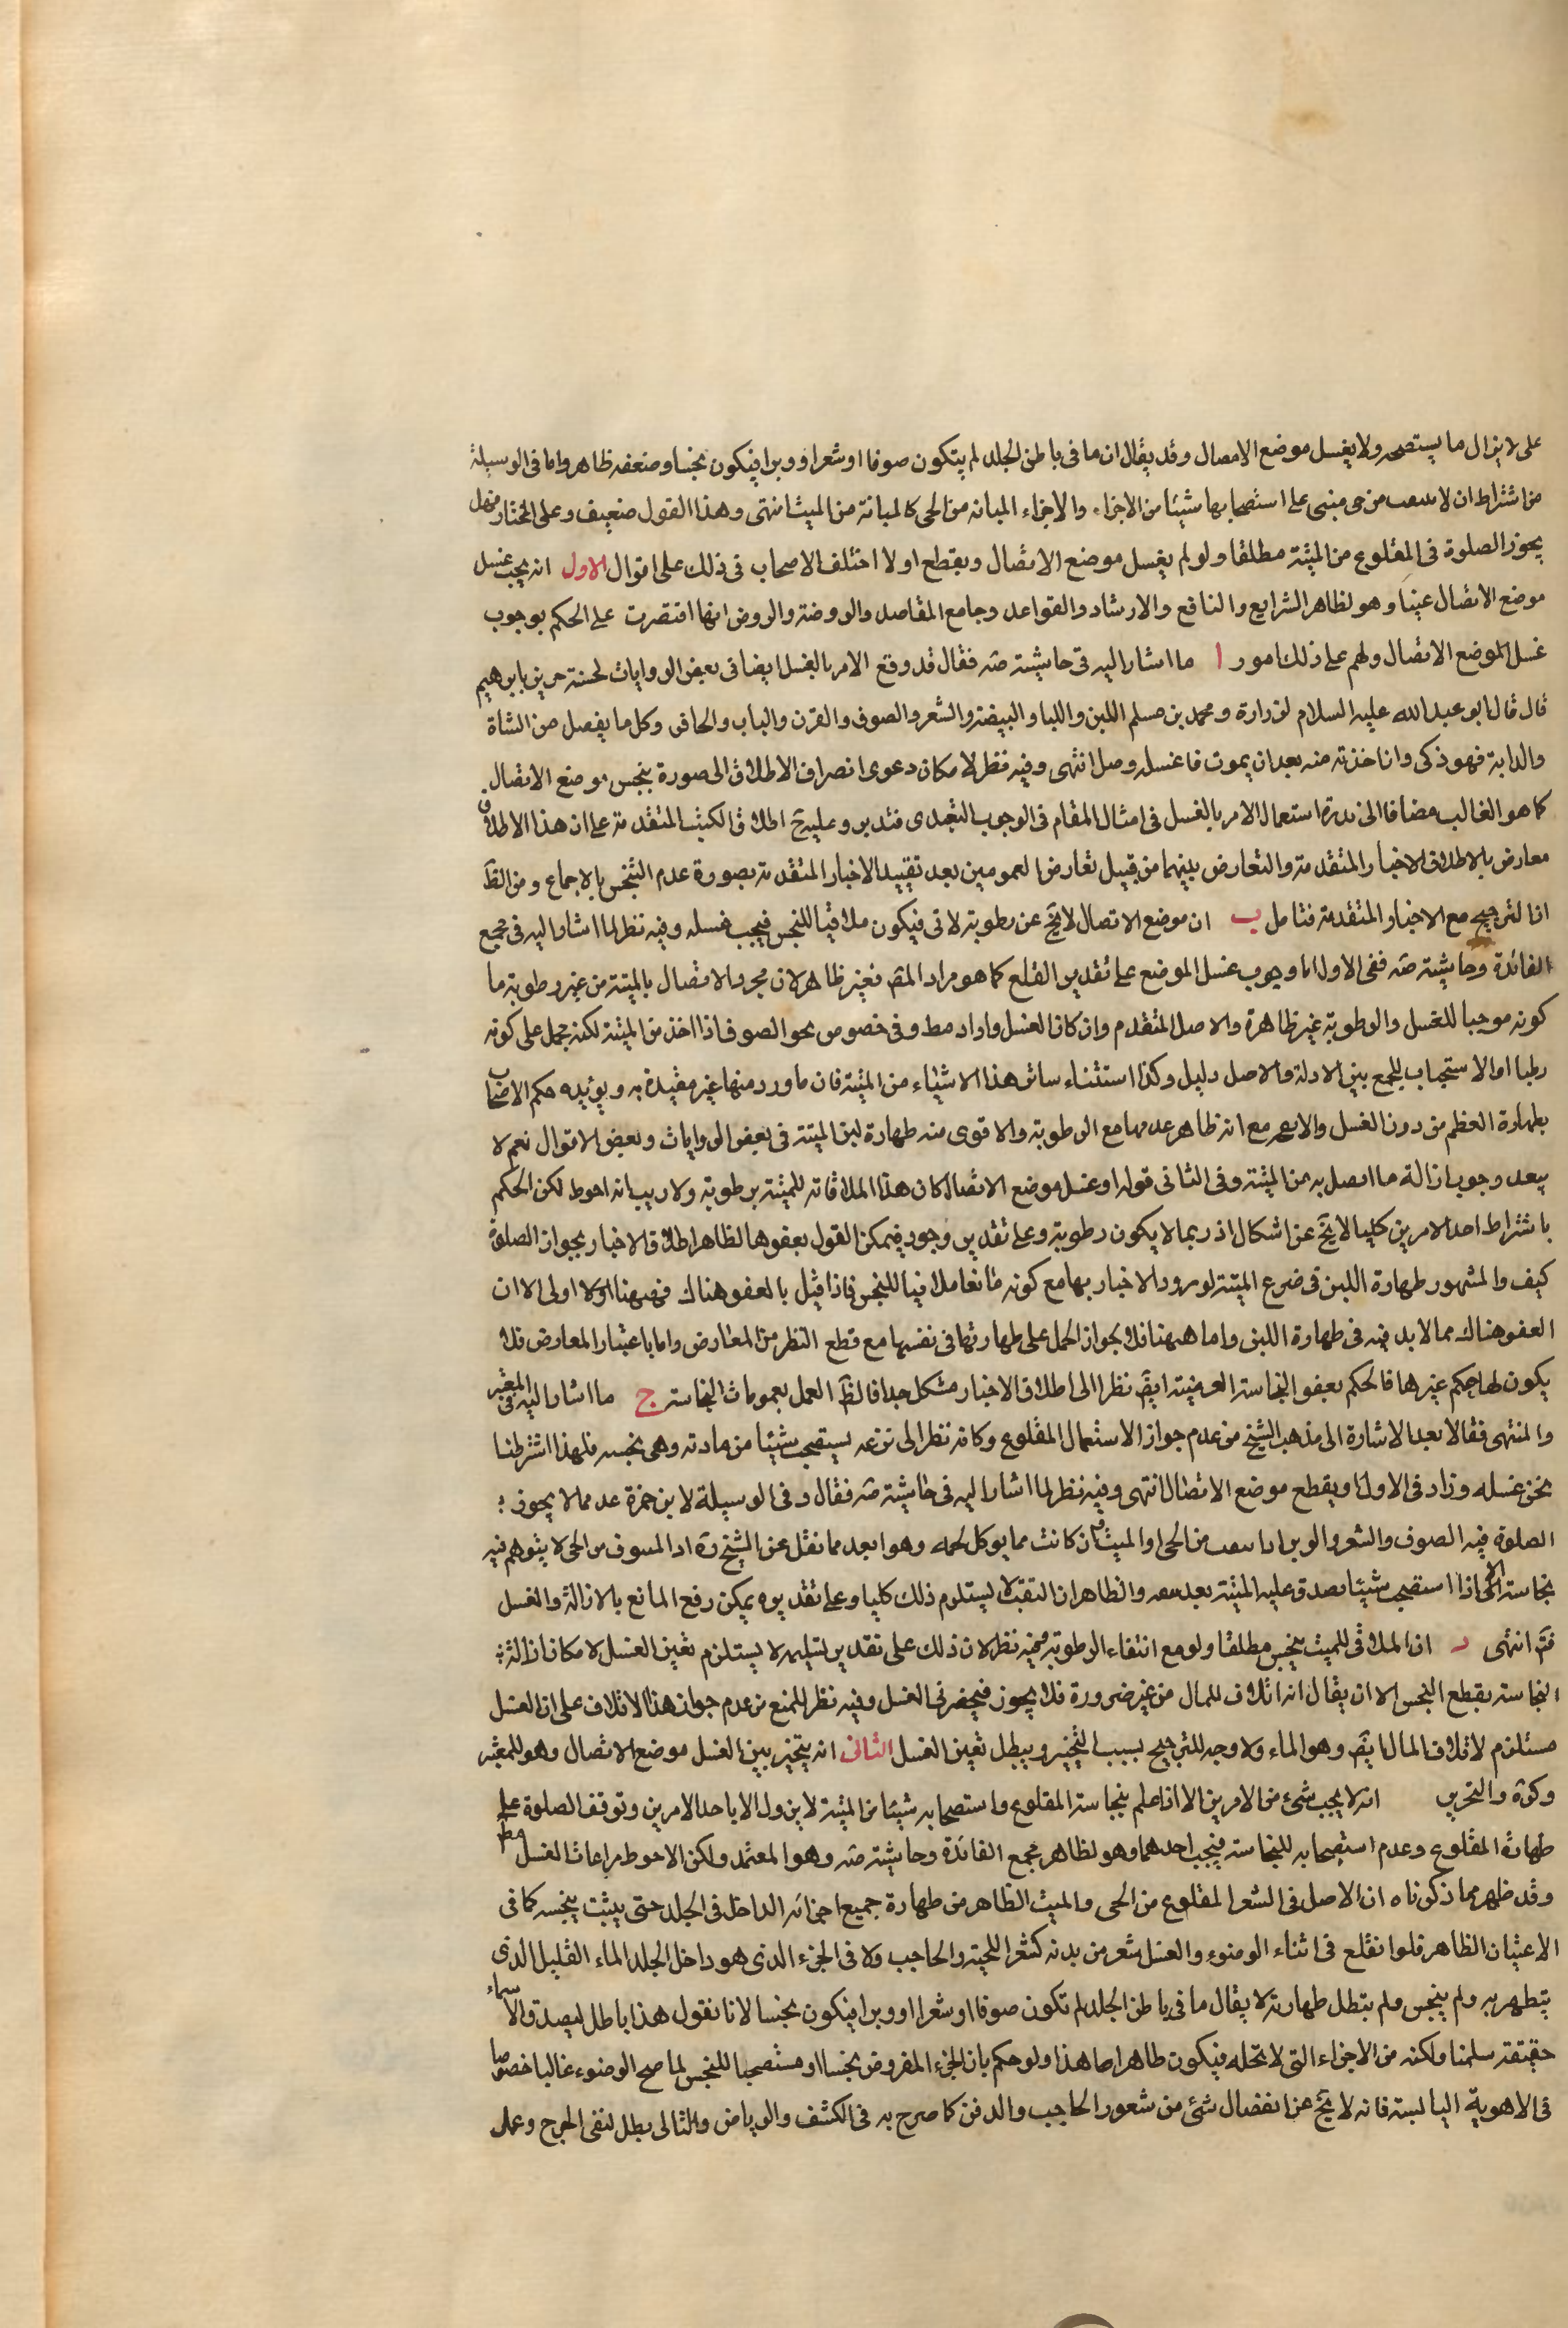 على لا يزال ما يستصحبه ولا يغسل موضع الاتصال وقد يقال ان ما فى باطن الجلد لم يتكون صوفا او شعرا او وبرا فيكون نجسا وضعفه ظاهر واما فى الوسيلة
من اشتراط ان لا من حى مبنى على استصحابها شيئا من الاجزاء والاجزاء المبانه من الحى كالمبانة من الميت انتهى وهذا القول ضعيف وعلى المختار فهل
يجوز الصلوة فى المقلوع من الميتة مطلقا ولو لم يغسل موضع الاتصال ويقطع او لا اختلف الاصحاب فى ذلك على اقوال الاول انه يجب غسل
موضع الاتصال عينا وهو لظاهر الشرايع والنافع والارشاد والقواعد وجامع المقاصد والروضة والروض انها اقتصرت على الحكم بوجوب
غسل الموضع الاتصال ولهم على ذلك امور ا ما اشار اليه فى حاشية ضه فقال قد وقع الامر بالغسل ايضا فى بعض الروايات لحسنة حريز بابرهيم
قال قال ابو عبد الله عليه السلام لزرارة ومحمد بن مسلم اللبن واللبا والبيضة والشعر والصوف والقرن والناب والحافر وكل ما يفصل من الشاة
والدابة فهو ذكى وان اخذته منه بعد ان يموت فاغسله وصل انتهى وفيه نظر لامكان دعوى انصراف الاطلاق الى صورة ينجس موضع الاتصال
كما هو الغالب مضافا الى ندرة استعمال الامر بالغسل فى امثال المقام فى الوجوب التعبدى فتدبر وعليه يح اطلاق الكيث المتقدمة على ان هذا الاطلاق
معارض بالاطلاق الاخبار المتقدمة والتعارض بينهما من قبيل تعارض العمومين بعد تقييد الاخبار المتقدمة بصورة عدم التنجس بالاجماع ومن الظ
ان الترجيح مع الاخبار المتقدمة فتامل ب ان موضع الاتصال لا يخ عن رطوبة لاتى فيكون ملاقيا للنجس فيجب غسله وفيه نظر لما اشار اليه فى مجمع
الفائدة وحاشية ضه ففى الاول اما وجوب غسل الموضع على تقدير القلع كما هو مراد المص فغير ظاهر لان مجرد الاتصال بالميتة من غير رطوبة ما
كونه موجبا للغسل والرطوبة غير ظاهرة والاصل المتقدم وان كان الغسل وارد وفى خصوص نحو الصوف اذا اخذ من الميتة لكنه حمل على كونه
رطبا او الاستحباب للجمع بين الادلة والاصل دليل وكذا استثناء سائر هذا الاشياء من الميتة فان ما ورد منها غير مقيدة به ويؤيده حكم الاصحاب
بطهارة العظم من دون الغسل مع انه ظاهر عدمها مع الرطوبة والاقوى منه طهارة لبن الميتة فى بعض الروايات وبعض الاقوال نعم لا
يبعد وجوب ازالة ما اتصل به من الميتة وفى الثانى قوله او غسل موضع الاتصال كان هذا الملاقاته للميتة برطوبة ولا ريب انه احوط لكن الحكم
باشتراط احد الامرين كليا لا يخ عن اشكال اذ ربما لا يكون رطوبة وعلى تقدير وجود فيمكن القول بعفوها لظاهر اطلاق الاخبار بجواز الصلوة
كيف والمشهور طهارة اللبن فى ضرع الميتة لورود الاخبار بها مع كونه مائعا ملاقيا للنجس فاذا قيل بالعفو هناك فهيهنا اولا اولى الا ان
العفو هناك مما لا بد فيه فى طهارة اللبن واما هيهنا فلا لجواز الحمل على طهارتها فى نفسها مع قطع النظر من المعارض واما باعتبار المعارض فلا
يكون لها حكم غيرها فالحكم بعفو النجاسة العينية ايض نظرا الى اطلاق الاخبار مشكل جدا فالظ العمل بعمومات النجاسة ج ما اشار اليه فى المعتبر
والمنتهى فقالا بعد الاشارة الى مذهب الشيخ من عدم جواز الاستعمال المقلوع وكانه نظر الى نزعه يستصحب شيئا من مادته وهى نجسه فلهذا اشترطنا
نحن غسله وزاد فى الاول او يقطع موضع الاتصال انتهى وفيه نظر لما اشار اليه فى حاشية ضه فقال وفى الوسيلة لابن حمزة عد مما لا يجوز
الصلوة فيه الصوف والشعر والوبر اذا من الحى او الميت وان كانت مما يوكل لحمه وهو ابعد مما نقل عن الشيخ ره اذ المنتوف من الحى لا يتوهم فيه
نجاسة الا اذا استصحب شيئا يصدق عليه الميتة بعد والظاهر ان النتف لا يستلزم ذلك كليا وعلى تقديره يمكن رفع المانع بالازالة والغسل
فتم انتهى د ان الملاقى للميت ينجس مطلقا ولو مع انتفاء الرطوبة وفيه نظر لان ذلك على تقدير تسليمه لا يستلزم تعين الغسل لامكان ازالة
النجاسة بقطع النجس الا ان يقال انه اتلاف للمال من غير ضرورة فلا يجوز فينحصر فى الغسل وفيه نظر للمنع من عدم جواز هذا الاتلاف على ان الغسل
مستلزم لاتلاف المال ايض وهو الماء ولا وجه للترجيح بسبب التخيير ويبطل تعين الغسل الثانى انه يتخير بين الغسل موضع الاتصال وهو للمعتبر
وكرة والتحرير انه لا يجب شئ من الامرين الا اذا علم بنجاسة المقلوع واستصحابه شيئا من الميتة لا يزول الا باحد الامرين وتوقف الصلوة على
طهارة المقلوع وعدم استصحابه للنجاسة فيجب احدهما وهو لظاهر مجمع الفائدة وحاشية ضه وهو المعتمد ولكن الاحوط مراعات الغسل مط
وقد ظهر مما ذكرناه ان الاصل فى الشعر المقلوع من الحى والميت الظاهر من طهارة جميع اجزائه الداخل فى الجلد حتى يثبت ينجسه كما فى
الاعثيان الظاهر فلو انقلع فى اثناء الوضوء والغسل شعر من بدنه كشعر اللحية والحاجب ولا فى الجزء الذى هو داخل الجلد الماء القليل الذى
يتطهر به ولم ينجس ولم يبطل طهارته لا يقال ما فى باطن الجلد لم تكون صوفا او شعرا او وبرا فيكون نجسا لانا نقول هذا باطل ليصدق الاسماء
حقيقة سلمنا ولكنه من الاجزاء التى لا تحله فيكون طاهرا هذا ولو حكم بان الجزء المفروض نجسا او مستصحبا للنجس لما صح الوضوء غالبا خصوصا
فى الاهوية اليابسة فانه لا يخ عن انفصال شئ من شعور الحاجب والدقن كما صرح به فى الكشف والرياض والتالى بطل لنفى الحرج وعمل